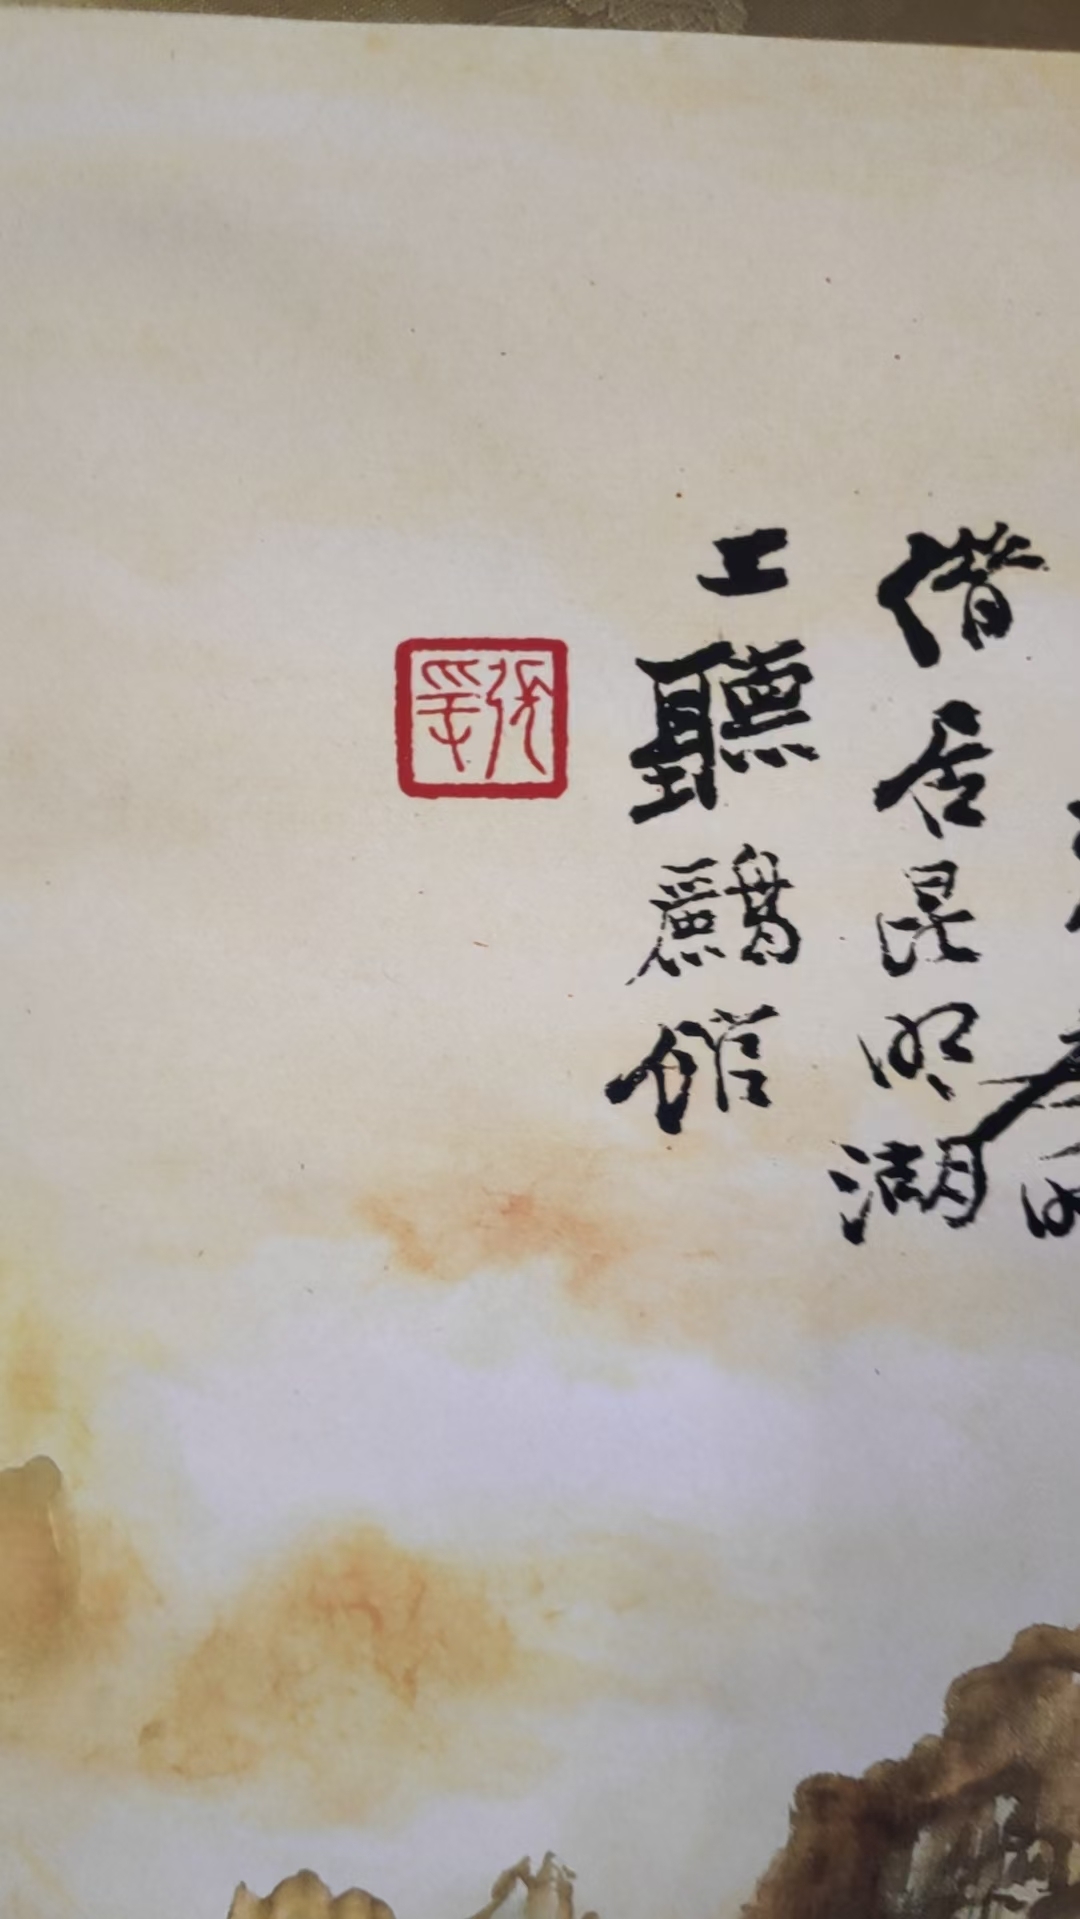 借居昆明湖
上聽鸝館
張爰